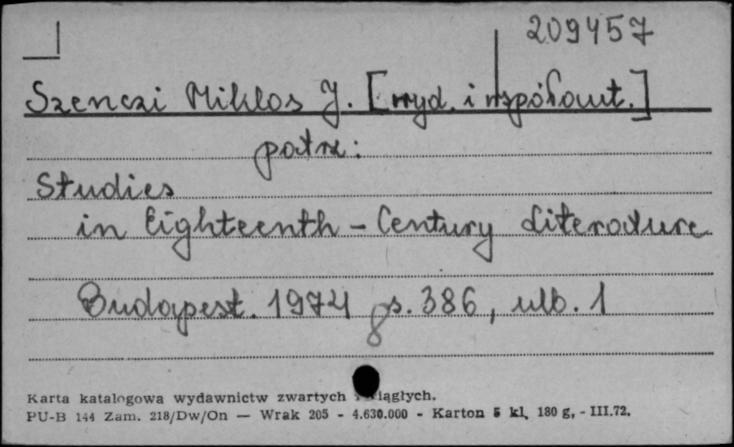 209457
Szenczi Miklos J. [wyd. i współaut.]
patrz:
Studies
in Eighteenth-Century Literature
Budapest. 1974 8 s. 386, ulb. 1
Karta katalogowa wydawnictw zwartych i ciągłych.
PU-B 144 Zam. 218/Dw/On — Wrak 205 - 4.630.000 - Karton 5 kl. 180 g. - III.72.